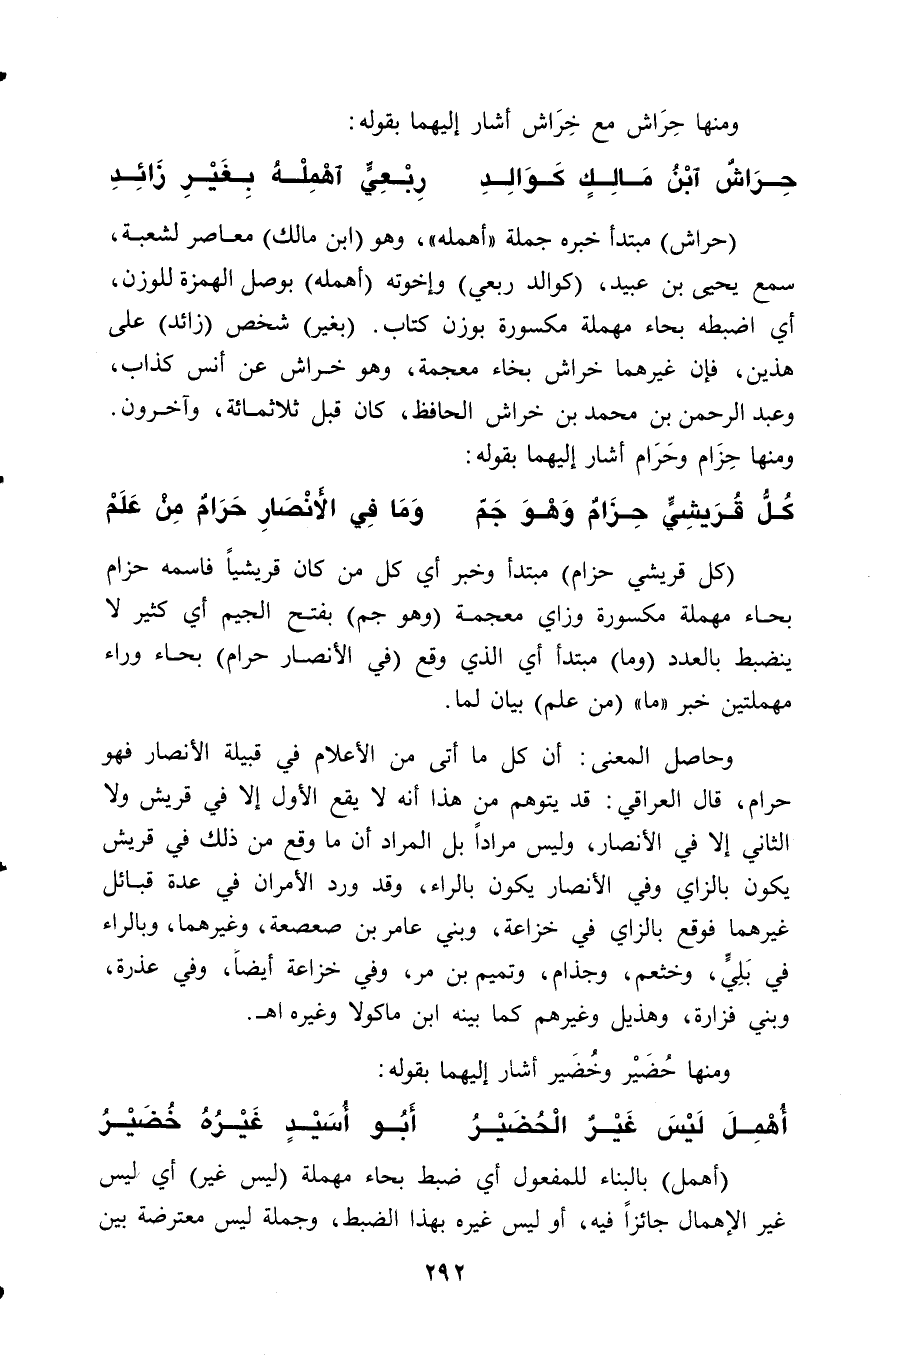 ومنها حِرَاش مع خِرَاش أشار إليهما بقوله:
حِـرَاشٌ ٱبْنُ مَـالِـكٍ كَـوَالِـدِ رِبْـعِيٍّ ٱهْمِلْـهُ بِـغَيْـرِ زَائِـدِ
(حراش) مبتدأ خبره جملة «أهمله»، وهو (ابن مالك) معـاصر لشعبـة،
سمع يحيى بن عبيد، (كوالد ربعي) وإخوته (أهمله) بوصل الهمزة للوزن،
أي اضبطه بحاء مهملة مكسورة بوزن كتاب. (بغير) شخص (زائد) على
هذين، فإن غيرهما خراش بخاء معجمة، وهو خـراش عن أنس كذاب،
وعبد الرحمن بن محمد بن خراش الحافظ، كان قبل ثلاثمـائة، وآخـرون.
ومنها حِزَام وحَرَام أشار إليهما بقوله:
كُلُّ قُـرَيشِيٍّ حِـزَامٌ وَهْـوَ جَمّ وَمَا فِي الأَنْصَارِ حَرَامٌ مِنْ عَلَمْ
(كل قريشي حزام) مبتدأ وخبر أي كل من كان قريشياً فاسمه حزام
بحـاء مهملة مكسورة وزاي معجمـة (وهو جم) بفتـح الجيم أي كثير لا
ينضبط بالعدد (وما) مبتدأ أي الذي وقع (في الأنصـار حرام) بحـاء وراء
مهملتين خبر «ما» (من علم) بيان لما.
وحاصل المعنى: أن كل ما أتى من الأعلام في قبيلة الأنصار فهو
حرام، قال العراقي: قد يتوهم من هذا أنه لا يقع الأول إلا في قريش ولا
الثاني إلا في الأنصار، وليس مراداً بل المراد أن ما وقع من ذلك في قريش
يكون بالزاي وفي الأنصار يكون بالراء، وقد ورد الأمران في عدة قبـائل
غيرهما فوقع بالزاي في خزاعة، وبني عامر بن صعصعة، وغيرهما، وبالراء
في بَلِيٍّ، وخثعم، وجذام، وتميم بن مر، وفي خزاعة أيضاً، وفي عذرة،
وبني فزارة، وهذيل وغيرهم كما بينه ابن ماكولا وغيره اهـ.
ومنها حُضَيْر وخُضَير أشار إليهما بقوله:
أُهْمِـلَ لَيْسَ غَيْـرُ الْحُضَيْـرُ أَبُـو أُسَيْـدٍ غَيْـرُهُ خُضَيْـرُ
(أهمل) بالبناء للمفعول أي ضبط بحاء مهملة (ليس غير) أي ليس
غير الإهمال جائزاً فيه، أو ليس غيره بهذا الضبط، وجملة ليس معترضة بين
٢٩٢